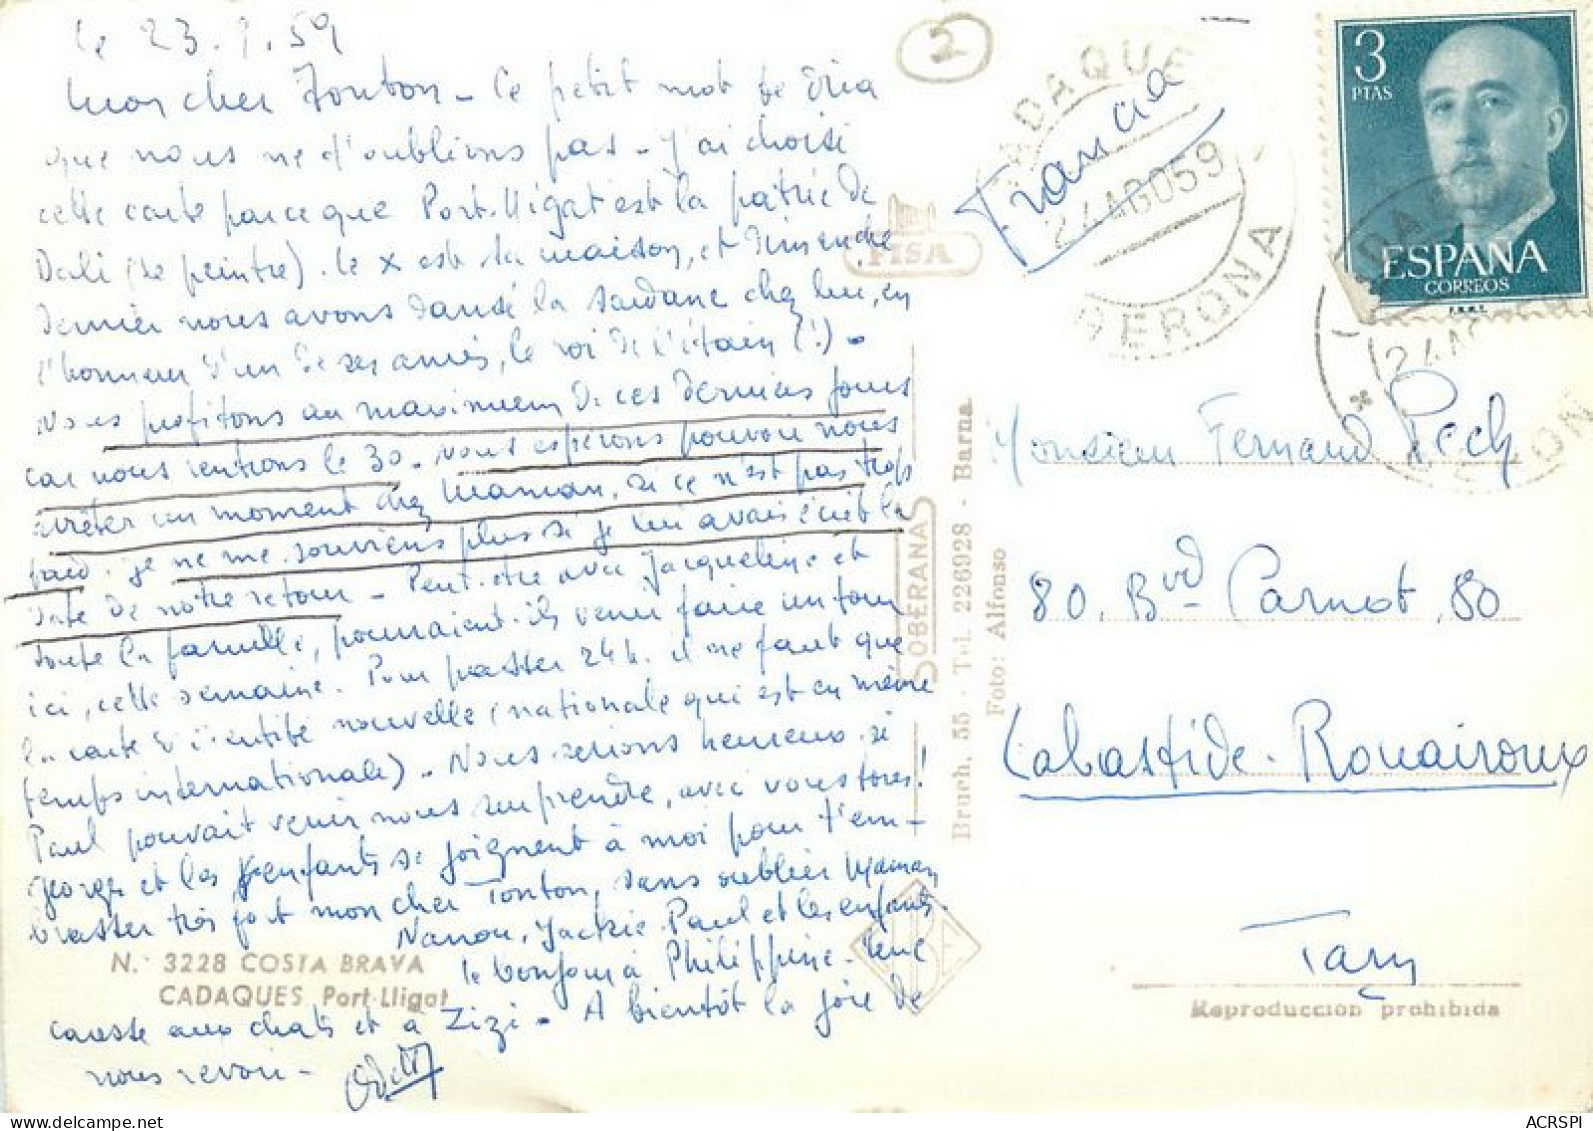 le 23.8.59
Mon cher Tonton - Ce petit mot te dira
que nous ne t'oublions pas - J'ai choisi
cette carte parce que Port-Lligat est la patrie de
Dali (le peintre). le X est sa maison, et dimanche
dernier nous avons dansé la sardane chez lui, en
l'honneur d'un de ses amis, le roi de l'étain (!) -
Nous profitons au maximum de ces derniers jours
car nous rentrons le 30 - Nous espérons pouvoir nous
arrêter un moment chez Maman, si ce n'est pas trop
tard. Je ne me souviens plus si je lui avais écrit la
date de notre retour - Peut-être avec Jacqueline et
toute la famille, pourraient-ils venir faire un tour
ici, cette semaine. Pour passer 24 h. il ne faut que
la carte d'identité nouvelle (nationale qui est en même
temps internationale) - Nous serions heureux si
Paul pouvait venir nous surprendre, avec vous tous!
George et les enfants se joignent à moi pour t'em-
brasser très fort mon cher Tonton, sans oublier Maman
Nanou, Jackie Paul et les enfants.
le bonjour à Philippine - Une
caresse aux chats et à Zizi - A bientôt la joie de
nous revoir -
Odette
N.° 3228 COSTA BRAVA
CADAQUES Port-Lligat
2
FISA
SOBERANAS
Bruch, 55 - Tel. 226928 - Barna.
Foto: Alfonso
Francia
CADAQUES
24 AGO 59
GERONA
3
PTAS
ESPAÑA
CORREOS
F.N.M.T.
24 AGO 59
GERONA
Monsieur Fernand Pech
80, Bvd Carnot, 80
Labastide-Rouairoux
Tarn
Reproduccion prohibida
ACRSPI